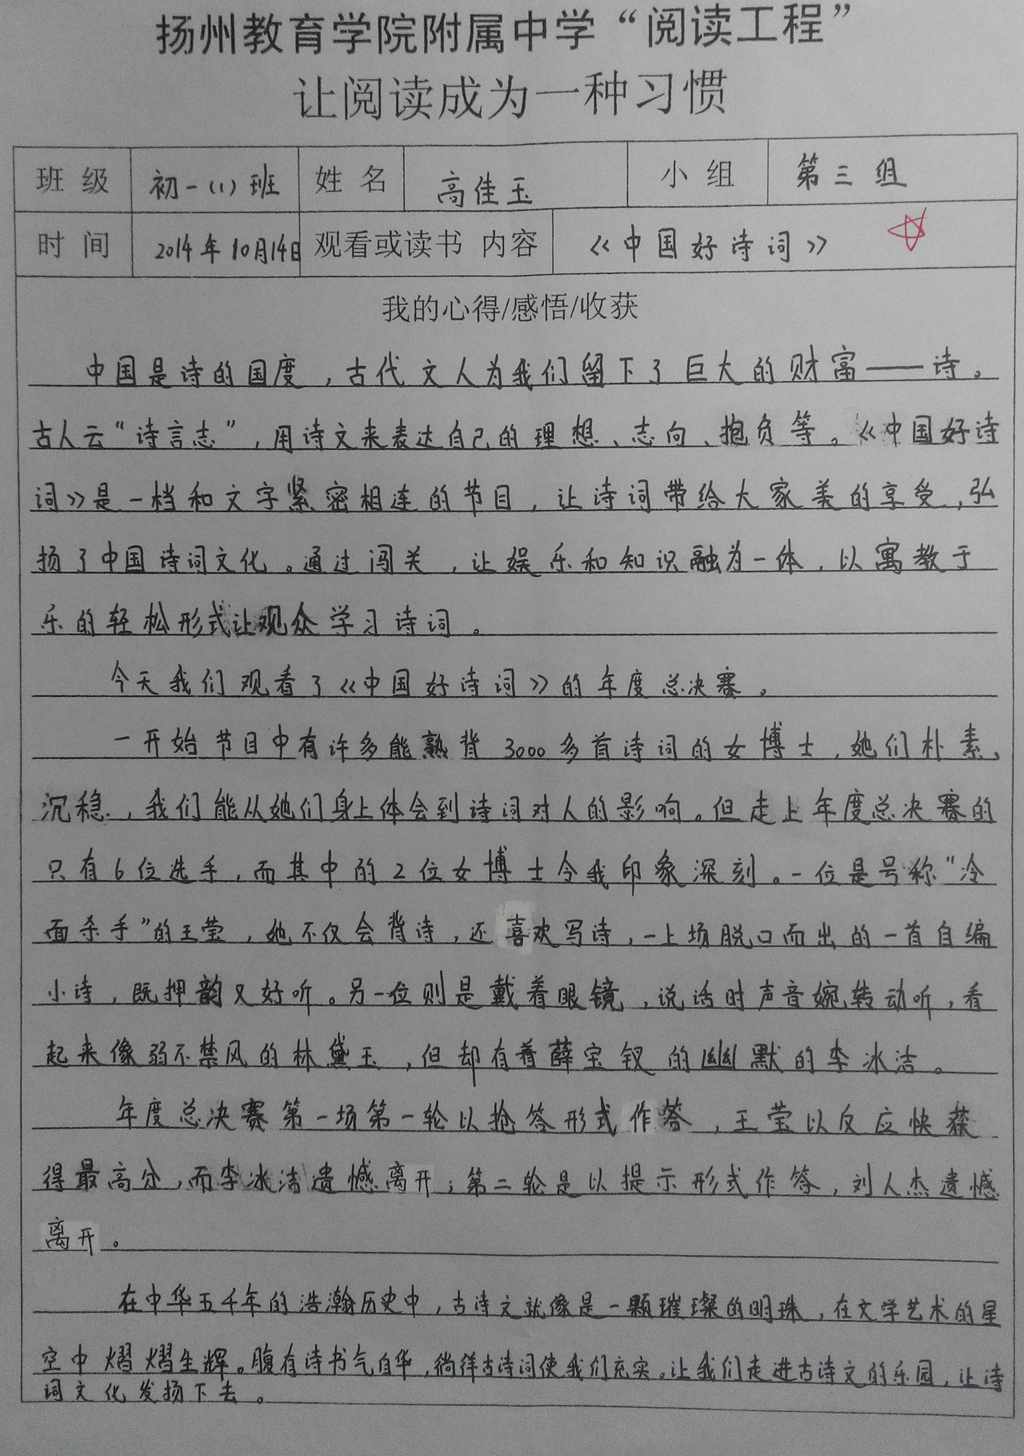 扬州教育学院附属中学“阅读工程”
让阅读成为一种习惯
班 级 初一(1)班 姓 名 高佳玉 小 组 第三组
时 间 2014年10月14日 观看或读书 内容 《中国好诗词》
我的心得/感悟/收获
中国是诗的国度，古代文人为我们留下了巨大的财富——诗。
古人云“诗言志”，用诗文来表达自己的理想、志向、抱负等。《中国好诗
词》是一档和文字紧密相连的节目，让诗词带给大家美的享受，弘
扬了中国诗词文化。通过闯关，让娱乐和知识融为一体，以寓教于
乐的轻松形式让观众学习诗词。
今天我们观看了《中国好诗词》的年度总决赛。
一开始节目中有许多能熟背3000多首诗词的女博士，她们朴素、
沉稳，我们能从她们身上体会到诗词对人的影响。但走上年度总决赛的
只有6位选手，而其中的2位女博士令我印象深刻。一位是号称“冷
面杀手”的王莹，她不仅会背诗，还喜欢写诗，一上场脱口而出的一首自编
小诗，既押韵又好听。另一位则是戴着眼镜，说话时声音婉转动听，看
起来像弱不禁风的林黛玉，但却有着薛宝钗的幽默的李冰洁。
年度总决赛第一场第一轮以抢答形式作答，王莹以反应快获
得最高分，而李冰洁遗憾离开；第二轮是以提示形式作答，刘人杰遗憾
离开。
在中华五千年的浩瀚历史中，古诗文就像是一颗璀璨的明珠，在文学艺术的星
空中熠熠生辉。腹有诗书气自华，徜徉古诗词使我们充实。让我们走进古诗文的乐园，让诗
词文化发扬下去。